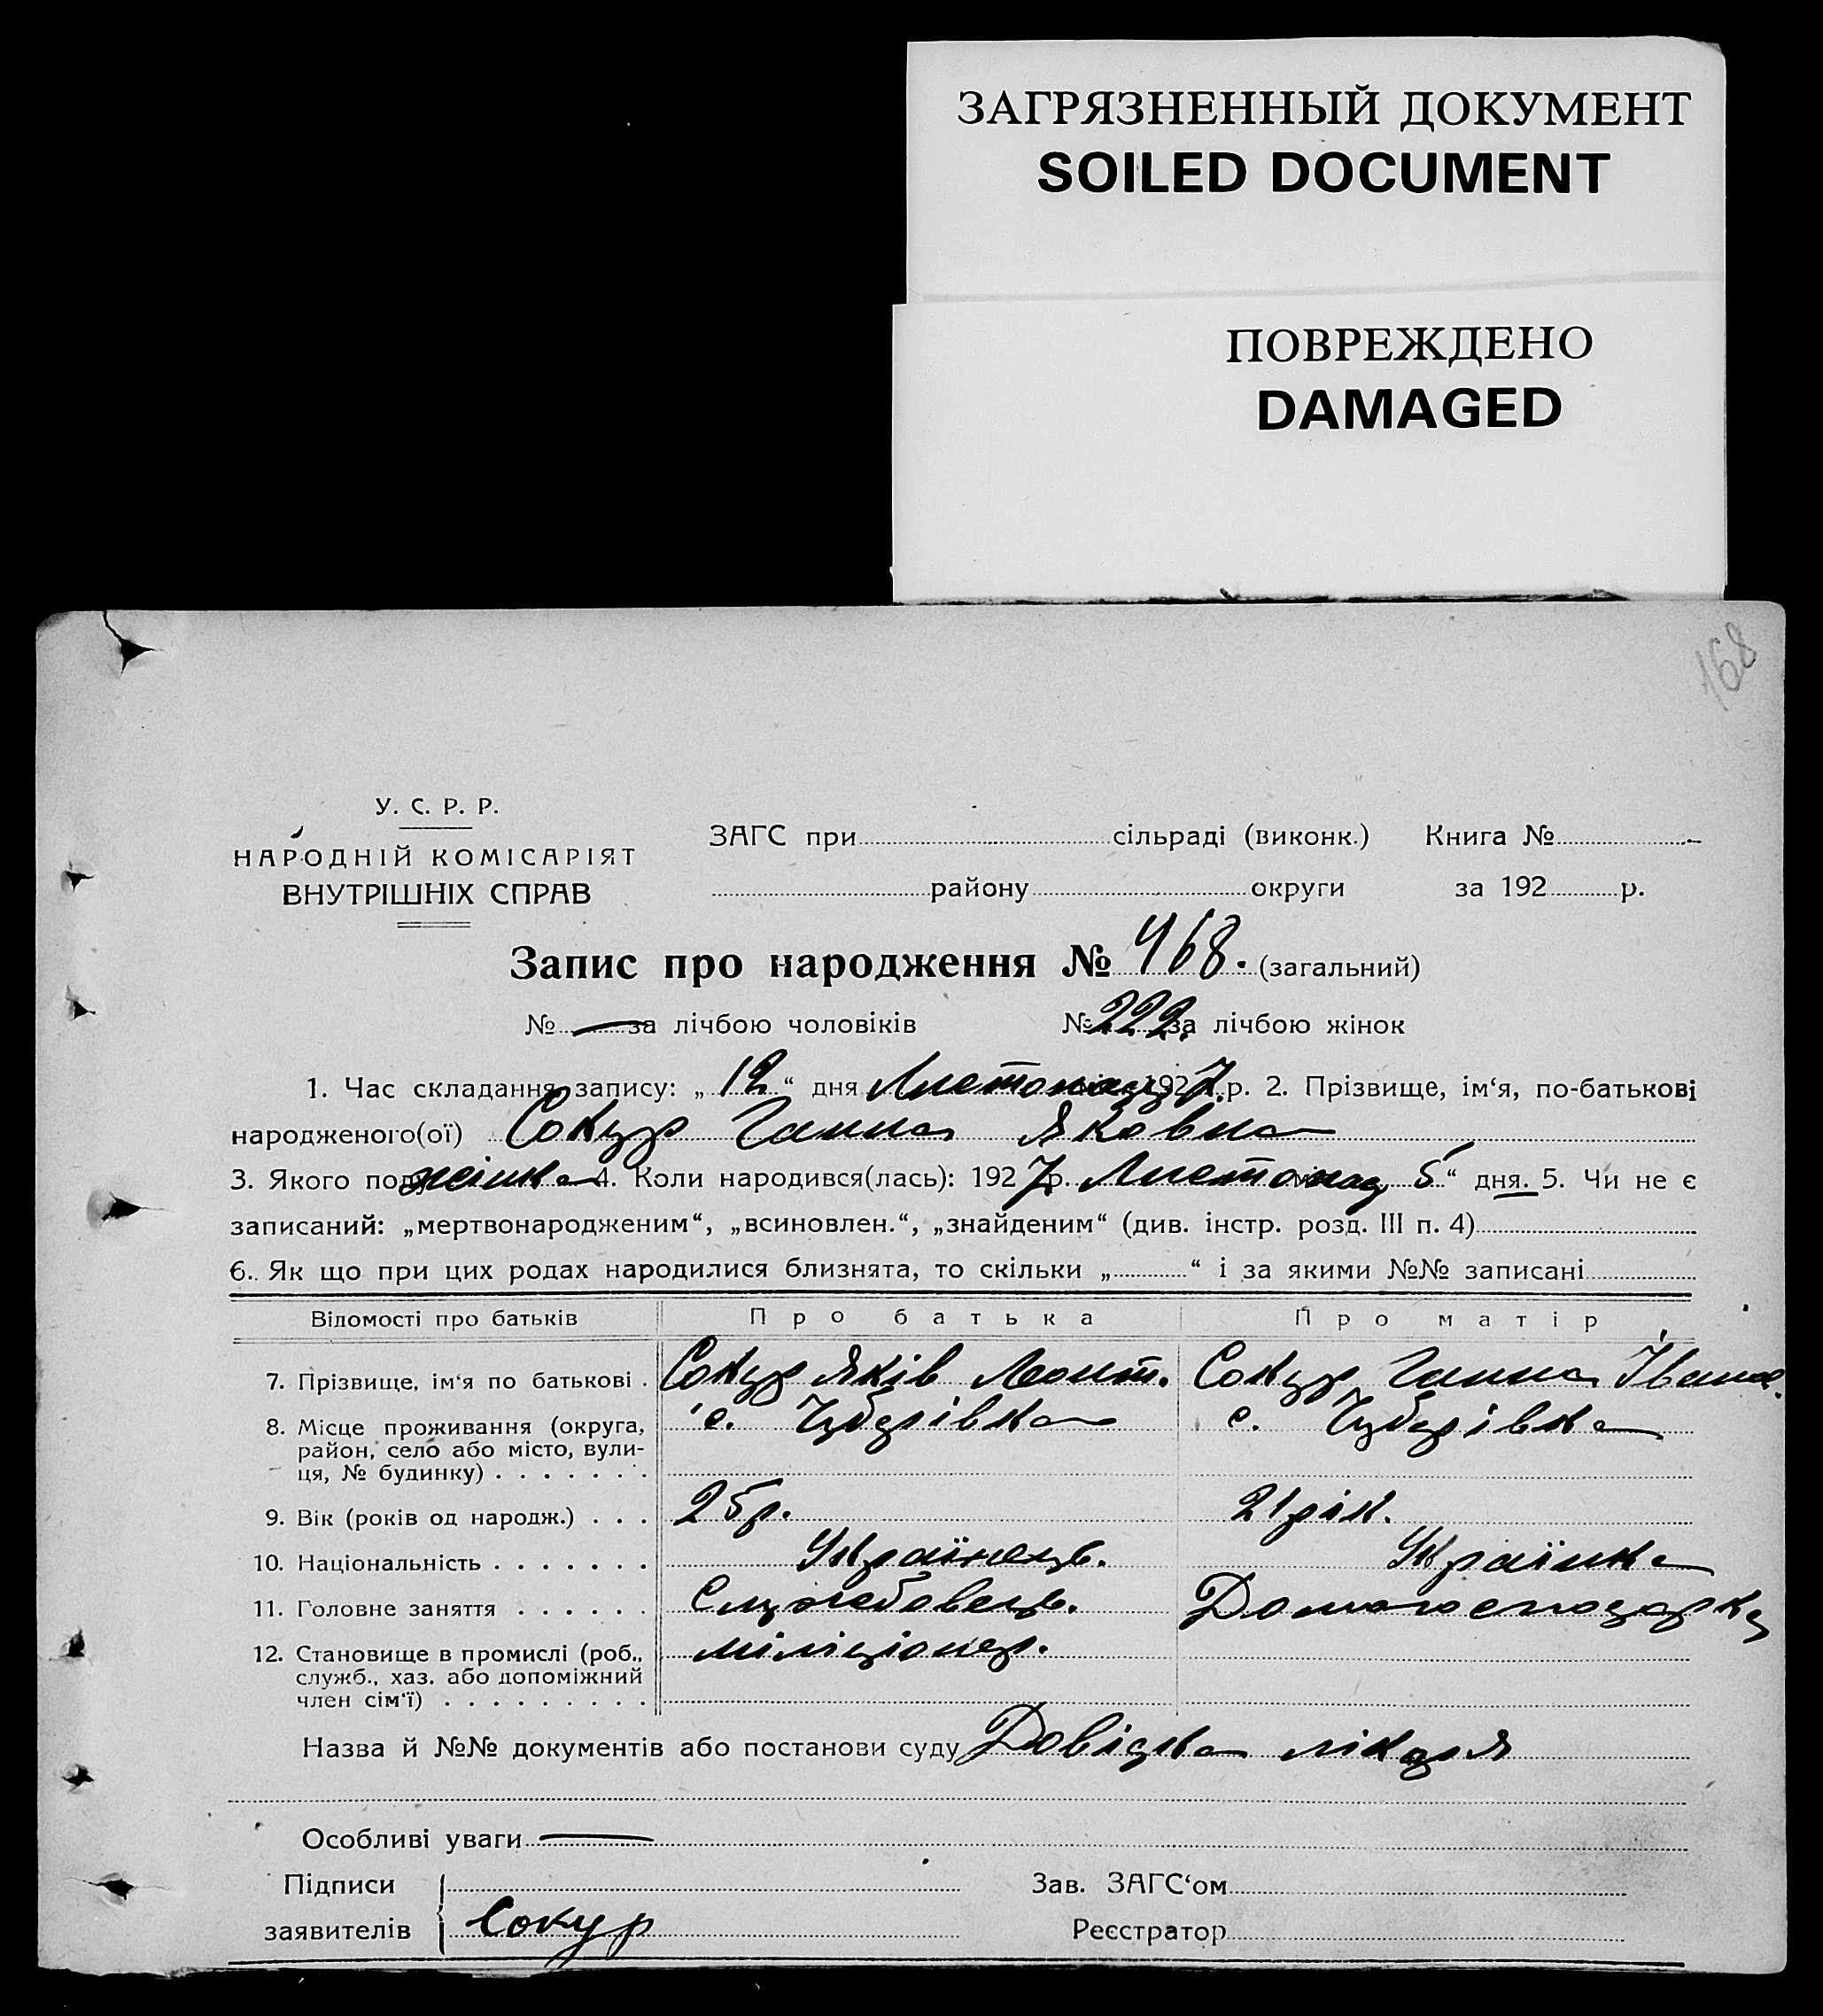 ЗАГРЯЗНЕННЫЙ ДОКУМЕНТ
SOILED DOCUMENT
ПОВРЕЖДЕНО
DAMAGED
168
У. С. Р. Р.
НАРОДНІЙ КОМІСАРІЯТ
ВНУТРІШНІХ СПРАВ
ЗАГС при сільраді (виконк.) Книга №
району округи за 192 р.
Запис про народження № 468. (загальний)
№ — за лічбою чоловіків № 222. за лічбою жінок
1. Час складання запису: „ 12 “ дня Листопад 1927 р. 2. Прізвище, ім‘я, по-батькові
народженого(ої) Сокур Ганна Яковна
3. Якого полу жінка 4. Коли народився(лась): 1927 р. Листопад 5 “ дня. 5. Чи не є
записаний: „мертвонародженим“, „всиновлен.“, „знайденим“ (див. інстр. розд. III п. 4)
6. Як що при цих родах народилися близнята, то скільки „ “ і за якими №№ записані
Відомості про батьків Про батька Про матір
7. Прізвище, ім‘я по батькові . Сокур Яків Леонт. Сокур Ганна Іванов.
8. Місце проживання (округа, с. Чубарівка с. Чубарівка
район, село або місто, вули-
ця, № будинку) . . . . . . .
9. Вік (років од народж.) . . . 25 р. 21 рік.
10. Національність . . . . . . . Українець. Українка
11. Головне заняття . . . . . . Службовець. Домогосподарка
12. Становище в промислі (роб., міліціонер.
служб., хаз. або допоміжний
член сім‘ї) . . . . . . . . .
Назва й №№ документів або постанови суду Довідка лікаря
Особливі уваги —
Підписи Зав. ЗАГС‘ом
заявителів Сокур Реєстратор